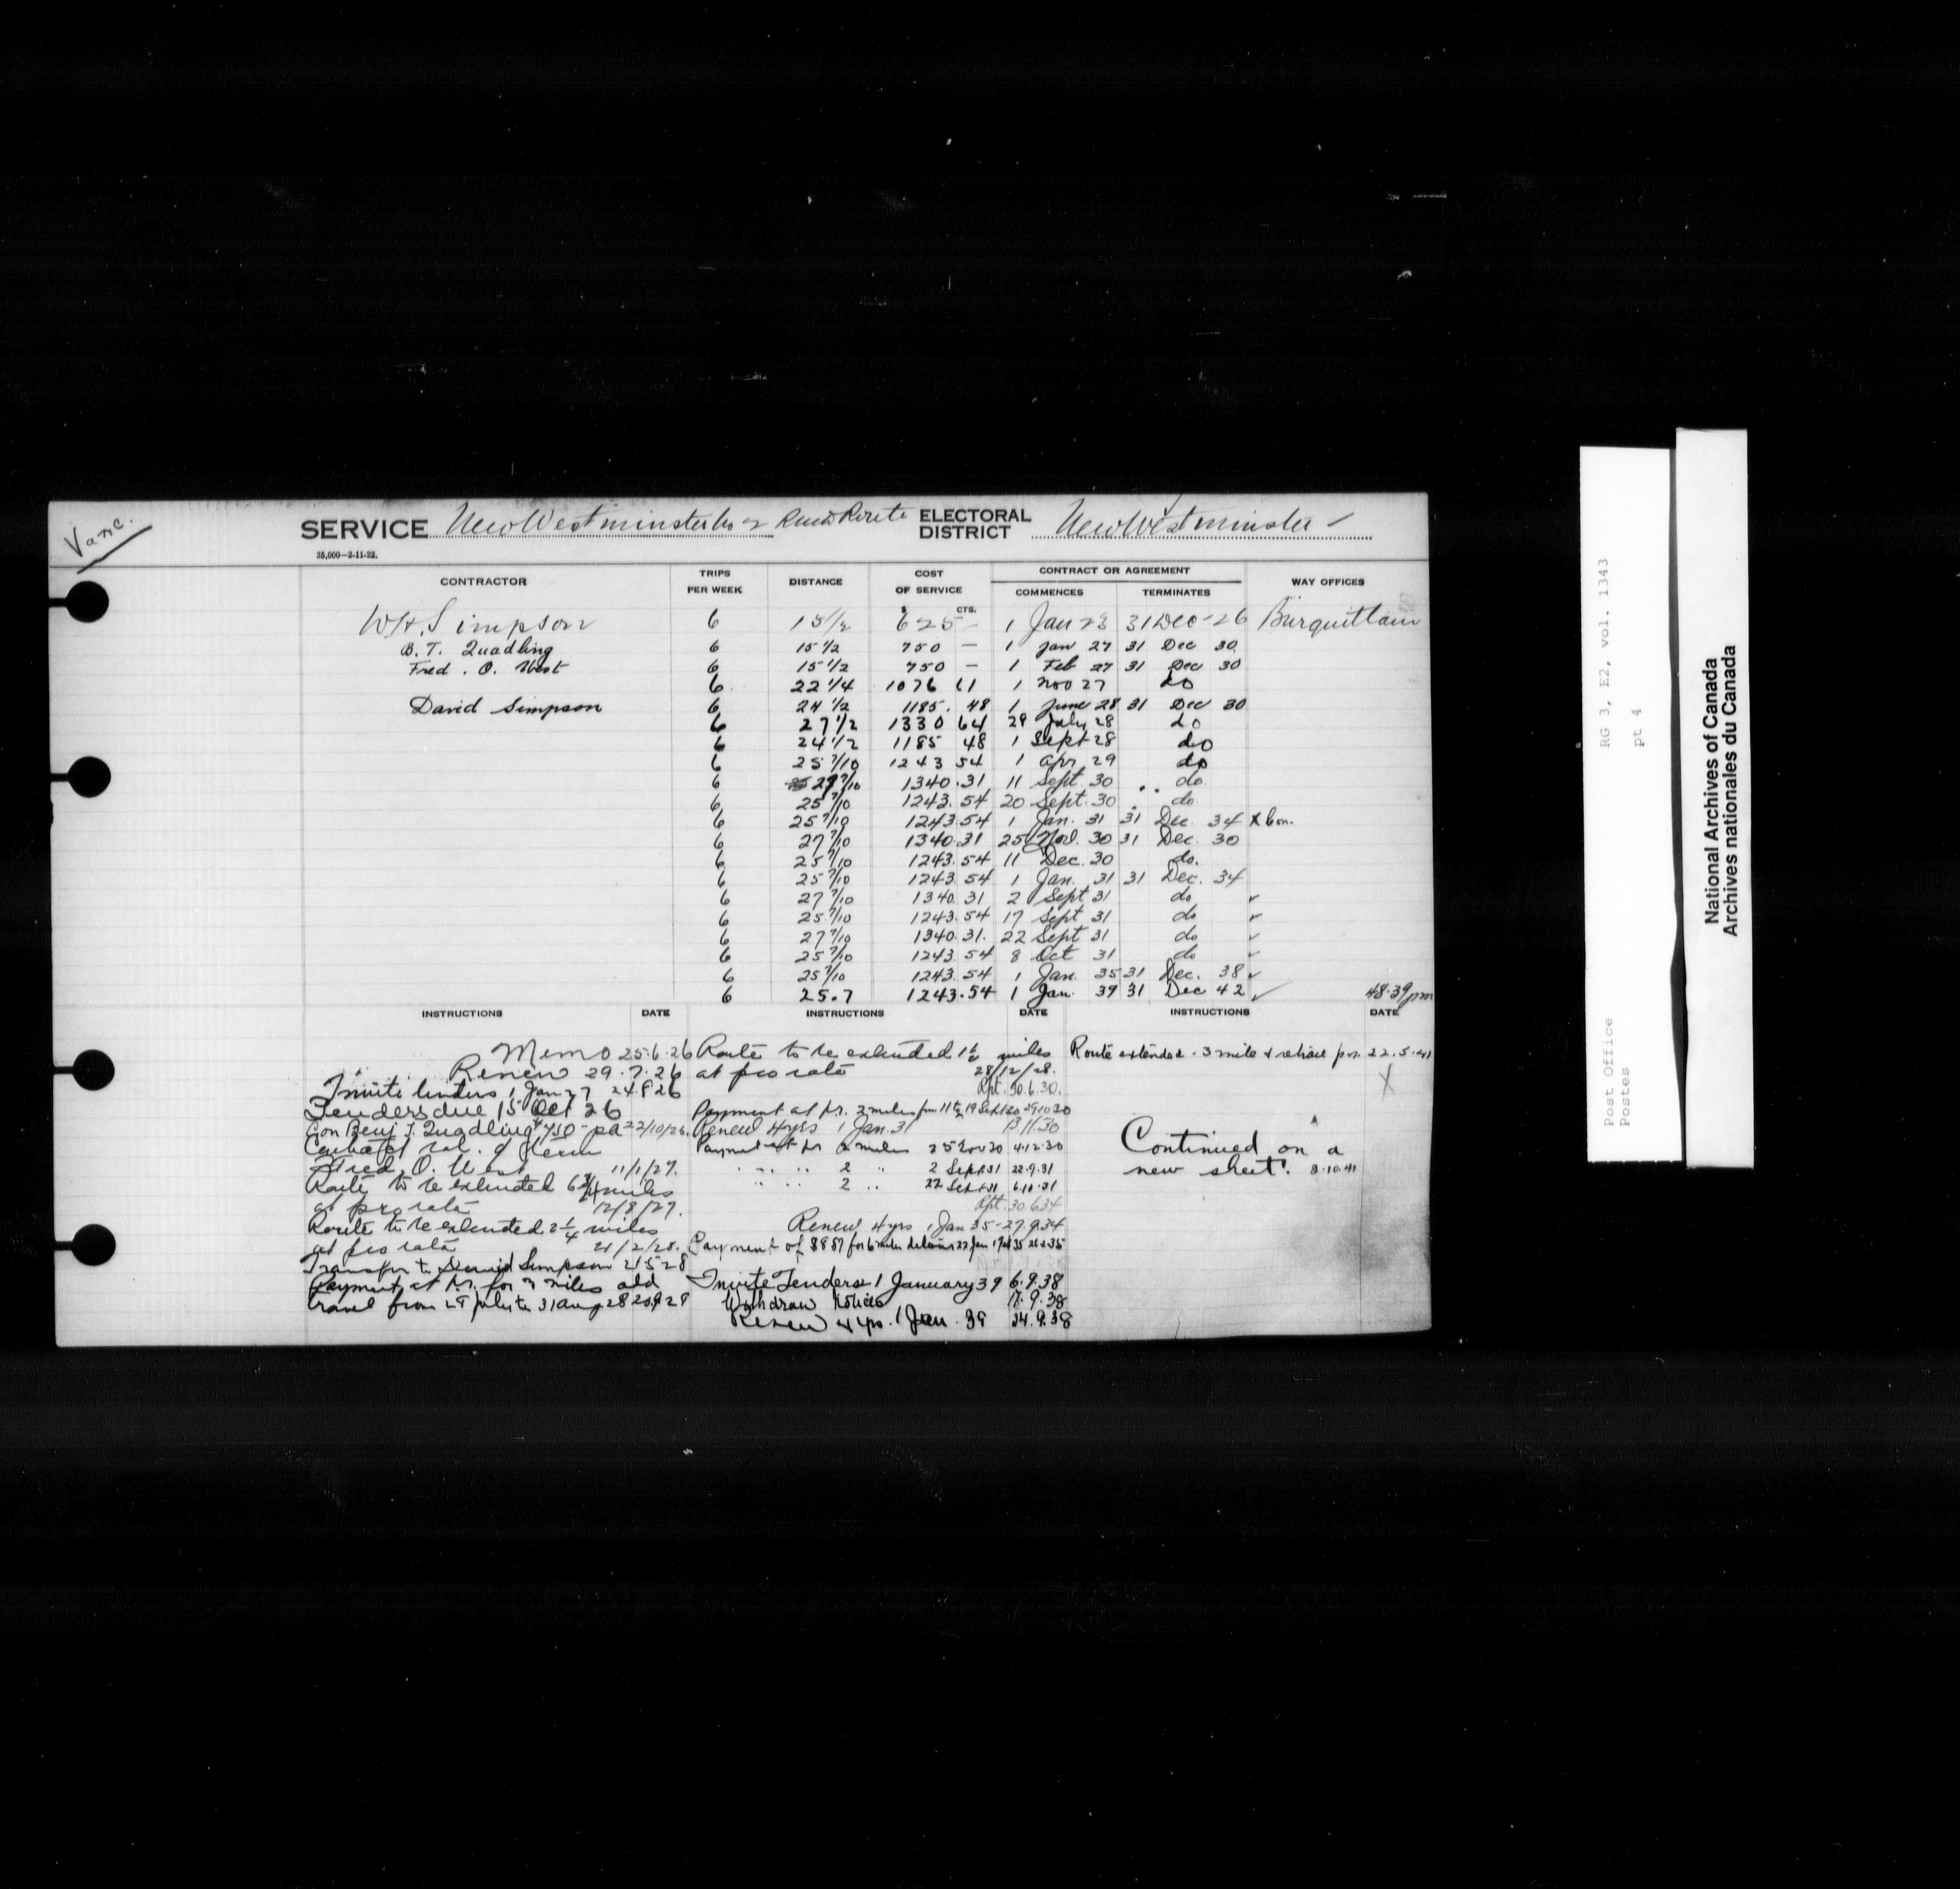 Vanc.
SERVICE New Westminster No 2 Rural Route ELECTORAL DISTRICT New Westminster
25,000—2-11-22.
CONTRACTOR TRIPS PER WEEK DISTANCE COST OF SERVICE CONTRACT OR AGREEMENT COMMENCES TERMINATES WAY OFFICES
$ CTS.
W.H. Simpson 6 15 1/2 625 – 1 Jan 23 31 Dec 26 Burquitlam
B. T. Quadling 6 15 1/2 750 — 1 Jan 27 31 Dec 30
Fred. O. West 6 15 1/2 750 — 1 Feb 27 31 Dec 30
6 22 1/4 1076 61 1 Nov 27 do
David Simpson 6 24 1/2 1185. 48 1 June 28 31 Dec 30
6 27 1/2 1330 64 29 July 28 do
6 24 1/2 1185 48 1 Sept 28 do
6 25 7/10 1243 54 1 Apr. 29 do
6 27 7/10 1340.31 11 Sept. 30 do.
6 25 7/10 1243.54 20 Sept. 30 do
6 25 7/10 1243.54 1 Jan. 31 31 Dec. 34 X Con.
6 27 7/10 1340.31 25 Nov. 30 31 Dec. 30
6 25 7/10 1243.54 11 Dec. 30 do.
6 25 7/10 1243.54 1 Jan. 31 31 Dec. 34
6 27 7/10 1340.31 2 Sept 31 do ✓
6 25 7/10 1243.54 17 Sept 31 do ✓
6 27 7/10 1340.31. 22 Sept 31 do ✓
6 25 7/10 1243.54 8 Oct 31 do ✓
6 25 7/10 1243.54 1 Jan. 35 31 Dec. 38 ✓
6 25.7 1243.54 1 Jan. 39 31 Dec 42 ✓ 48.39 pm
INSTRUCTIONS DATE INSTRUCTIONS DATE INSTRUCTIONS DATE
Memo 25.6.26
Renew 29.7.26
Invite tenders 1 Jan 27 24.8.26
Tenders due 15 Oct 26
Con Benj T. Quadling $750 – pa 22/10/26.
Fred. O. West 11/1/27.
Route to be extended 6 3/4 miles
at pro rata 12/8/27.
Route to be extended 2 1/4 miles
at pro rata 21/2/28.
Transfer to David Simpson 21 5 28
Payment at pr. for 3 miles add
travel from 29 July to 31 Aug 28 20.9.28
Route to be extended 1 1/5 miles
at pro rata 28/12/28.
Rpt. 30.6.30.
Payment at pr. 2 miles from 11 to 19 Sept 30 29.10.30
Renew 4 yrs 1 Jan. 31 13.11.30
Payment at pr 2 miles 25 Nov 30 4.12.30
" " " 2 " 2 Sept 31 22.9.31
" " " 2 " 22 Sept 31 6.10.31
Rpt. 30.6.34
Renew 4 yrs 1 Jan 35 - 27.9.34
Payment of $8.87 for 6 miles detour 22 Jan
Invite Tenders 1 January 39 6.9.38
Withdraw notices 17.9.38
Renew 4 yrs. 1 Jan. 39 24.9.38
Route extended .3 mile 22.5.41
X
Continued on a
new sheet. 8.10.41
RG 3, E2, vol. 1343
pt 4
Post Office
Postes
National Archives of Canada
Archives nationales du Canada